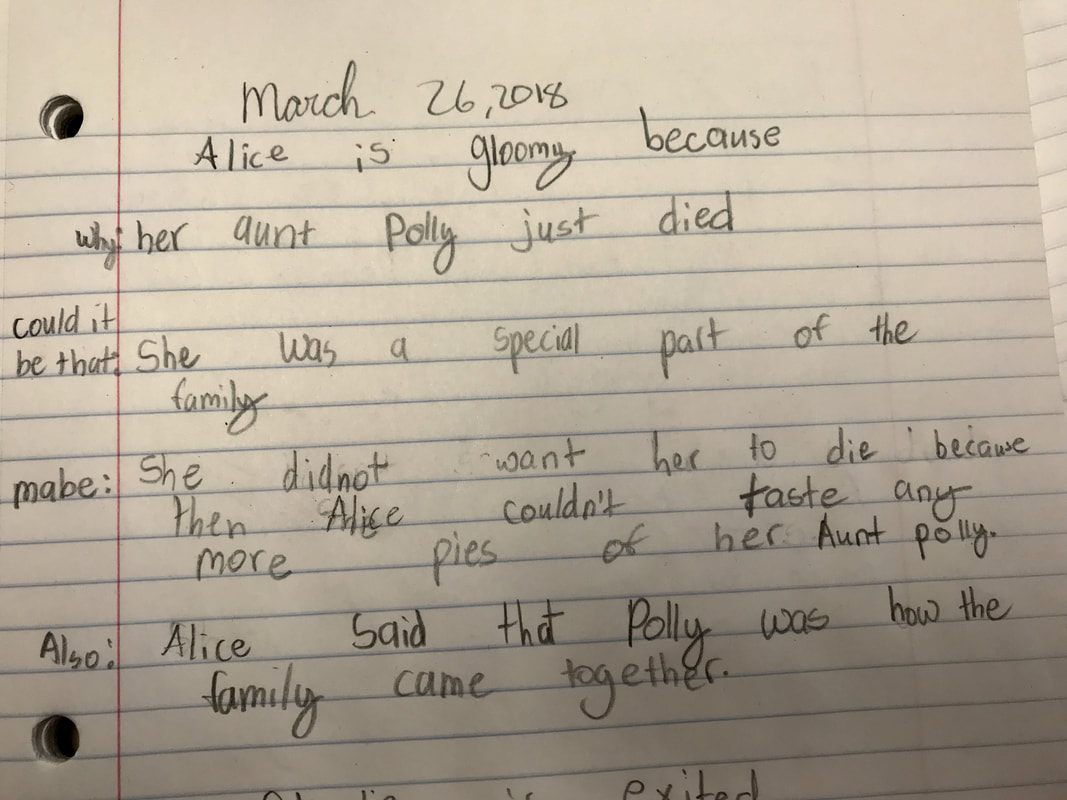 March 26, 2018
Alice is gloomy because
why: her aunt Polly just died
could it
be that: She was a special part of the
family
mabe: She didnot want her to die because
then Alice couldn't taste any
more pies of her Aunt polly.
Also: Alice Said that Polly was how the
family came together.
is exited